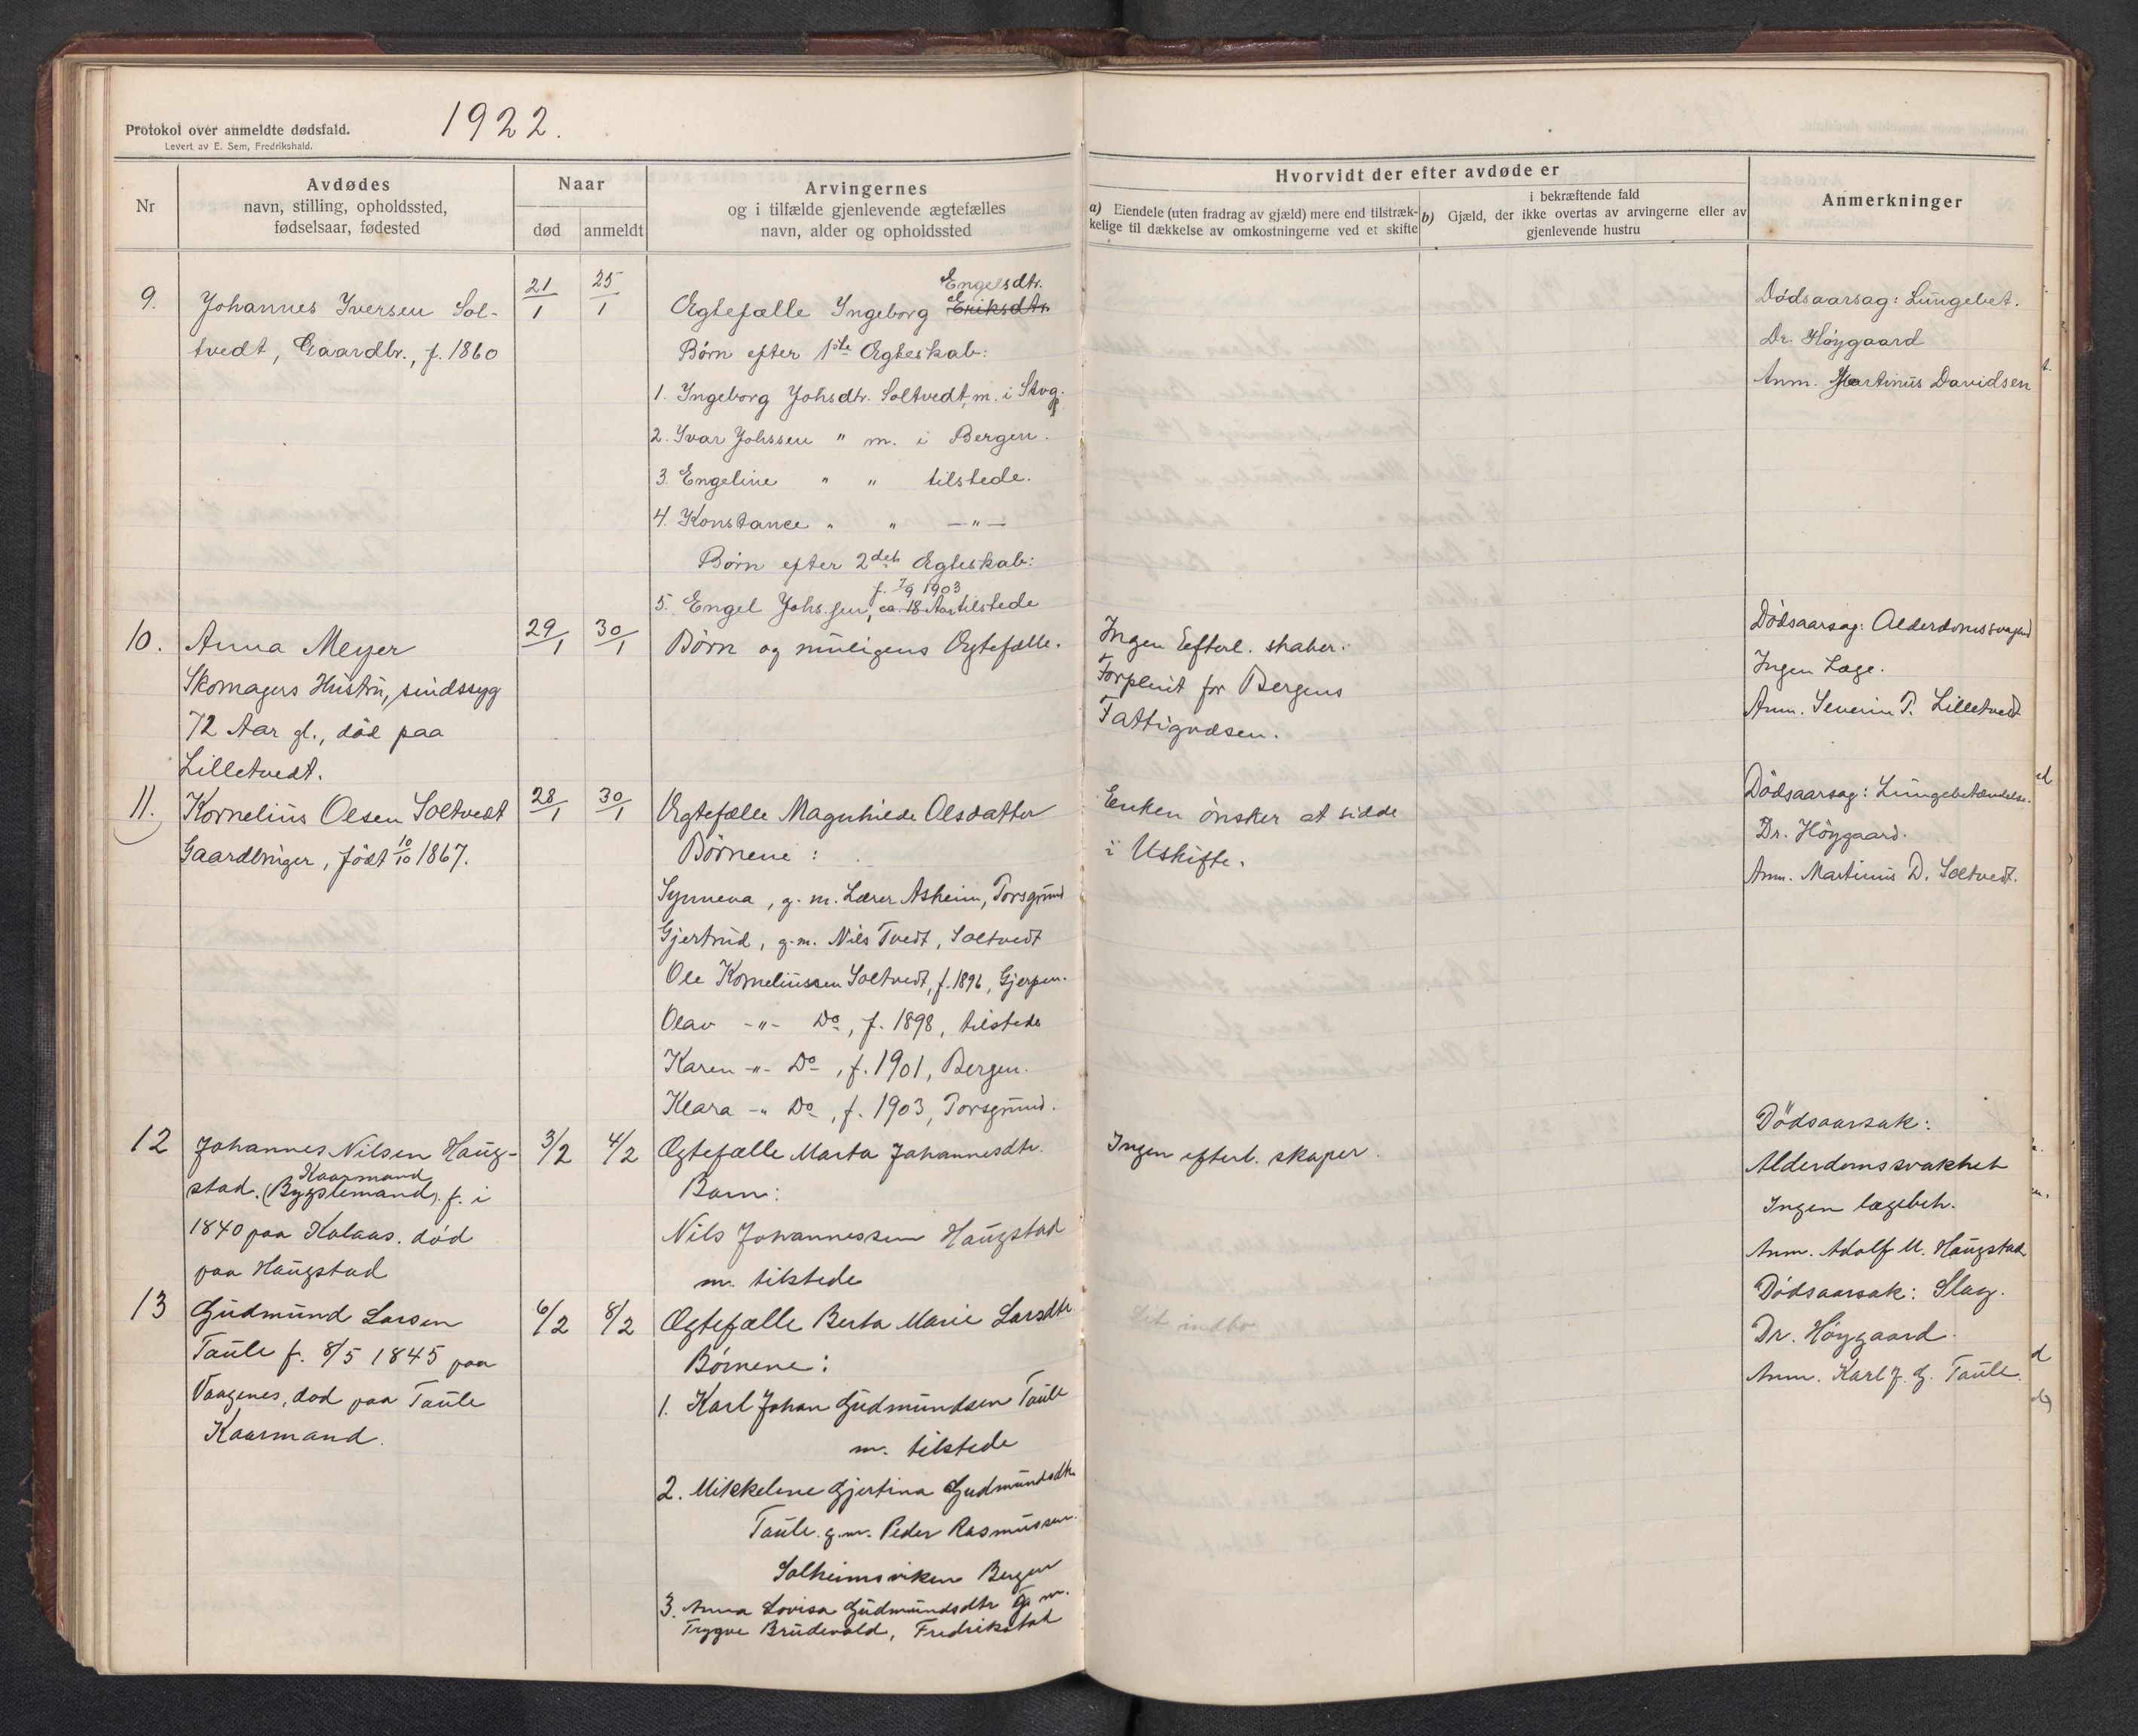 1922.
Protokol over anmeldte dødsfald.
Levert av E. Sem, Fredrikshald.
Nr
Avdødes
navn, stilling, opholdssted,
fødselsaar, fødested
Naar
død
anmeldt
Arvingernes
og i tilfælde gjenlevende ægtefælles
navn, alder og opholdssted
Hvorvidt der efter avdøde er
a) Eiendele (uten fradrag av gjæld) mere end tilstræk-
kelige til dækkelse av omkostningerne ved et skifte
i bekræftende fald
b) Gjæld, der ikke overtas av arvingerne eller av
gjenlevende hustru
Anmerkninger
9.
Johannes Iversen Sol-
tvedt, Gaardbr., f. 1860
21/1
25/1
Engelsdtr.
Ægtefælle Ingeborg Eriksdtr.
Børn efter 1ste Ægteskab:
1. Ingeborg Johsdtr. Soltvedt, m. i Skog.
2. Ivar Johssen " m. i Bergen.
3. Engeline " " tilstede.
4. Konstance " " —"—
Børn efter 2det Ægteskab:
f. 7/9 1903
5. Engel Johs.sen, ca. 18 Aar tilstede
Dødsaarsag: Lungebet.
Dr. Höygaard
Anm. Martinus Davidsen
10.
Anna Meyer
Skomagers Hustru, sindssyg
72 Aar gl., död paa
Lilletvedt.
29/1
30/1
Börn og muligens Ægtefælle.
Ingen Efterl. skaber.
Forpleiet for Bergens
Fattigvæsen.
Dödsaarsag: Alderdomssvaghed
Ingen Læge.
Anm. Severin P. Lilletvedt
11.
Kornelius Olsen Soltvedt
Gaardbruger, födt 10/10 1867.
28/1
30/1
Ægtefælle Magnhilde Olsdatter
Börnene:
Synneva, g. m. Lærer Asheim, Porsgrund
Gjertrud, g. m. Nils Tvedt, Soltvedt
Ole Korneliussen Soltvedt, f. 1896, Gjerpen.
Olav -"- Do, f. 1898, tilstede
Karen -"- Do, f. 1901, Bergen.
Klara -" Do, f. 1903, Porsgrund.
Enken önsker at sidde
i Uskifte.
Dödsaarsag: Lungebetændelse.
Dr. Höygaard.
Anm. Martinus D. Soltvedt.
12
Johannes Nilsen Haug-
Kaarmand
stad. (Bygslemand). f. i
1840 paa Kolaas. död
paa Haugstad
3/2
4/2
Ægtefælle Marta Johannesdtr.
Barn:
Nils Johannessen Haugstad
m. tilstede
Ingen efterl. skaper.
Dödsaarsak:
Alderdomssvakhet
Ingen lægebeh.
Anm. Adolf M. Haugstad
13
Gudmund Larsen
Taule f. 8/5 1845 paa
Vaagenes, död paa Taule
Kaarmand.
6/2
8/2
Ægtefælle Berta Marie Larsdtr
Börnene:
1. Karl Johan Gudmundsen Taule
m. tilstede
2. Mikkeline Gjertina Gudmundsdtr
Taule g. m. Peder Rasmussen.
Solheimsviken Bergen
3. Anna Lovisa Gudmundsdtr G. m.
Trygve Brudevold, Fredrikstad
Lit indbo
Dödsaarsak: Slag.
Dr. Höygaard.
Anm. Karl J. G. Taule.